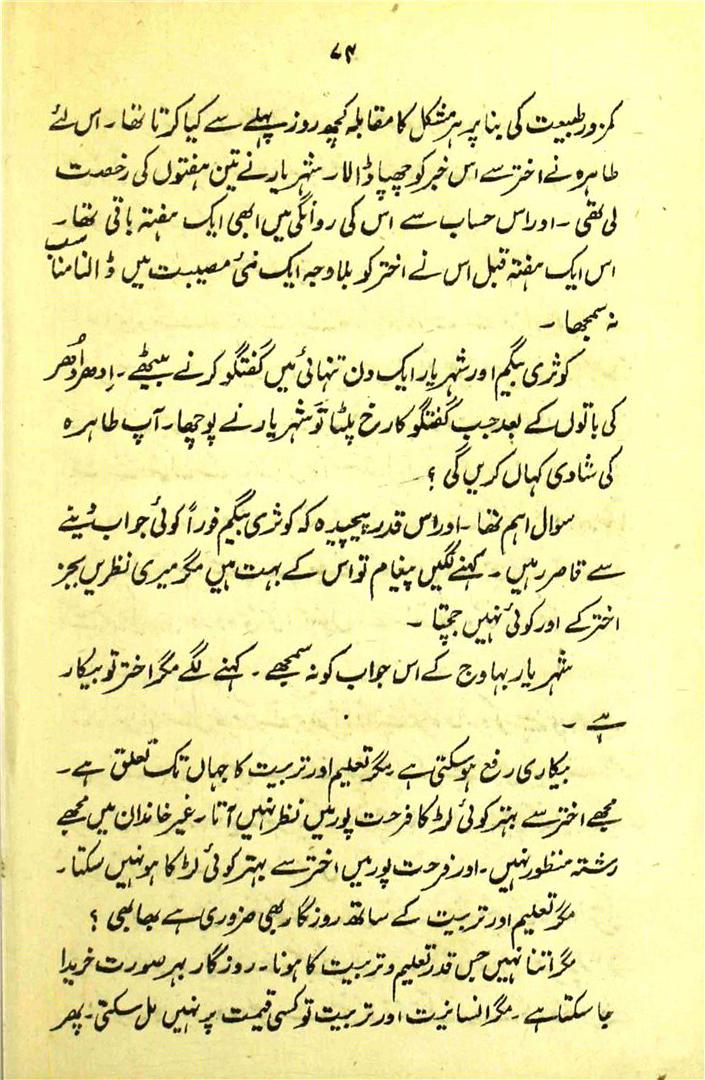 ۷۴
کمزور طبیعت کی بنا پر ہر مشکل کا مقابلہ کچھ روز پہلے سے کیا کرتا تھا۔ اس لئے
طاہرہ نے اختر سے اس خبر کو چھپا ڈالا۔ شہریار نے تین ہفتوں کی رخصت
لی تھی۔ اور اس حساب سے اس کی روانگی میں ابھی ایک ہفتہ باقی تھا۔
اس ایک ہفتہ قبل اس نے اختر کو بلاوجہ ایک نئی مصیبت میں ڈالنا مناسب
نہ سمجھا۔
کوثری بیگم اور شہریار ایک دن تنہائی میں گفتگو کرنے بیٹھے۔ اِدھر اُدھر
کی باتوں کے بعد جب گفتگو کا رخ پلٹا تو شہریار نے پوچھا۔ آپ طاہرہ
کی شادی کہاں کریں گی؟
سوال اہم تھا۔ اور اس قدر پیچیدہ کہ کوثری بیگم فوراً کوئی جواب دینے
سے قاصر رہیں۔ کہنے لگیں پیغام تو اس کے بہت ہیں مگر میری نظر میں بجز
اختر کے اور کوئی نہیں جچتا۔
شہریار بہاوج کے اس جواب کو نہ سمجھے۔ کہنے لگے مگر اختر تو بیکار
ہے۔
بیکاری رفع ہو سکتی ہے مگر تعلیم اور تربیت کا جہاں تک تعلق ہے۔
مجھے اختر سے بہتر کوئی لڑکا فرحت پور میں نظر نہیں آتا۔ غیر خاندان میں مجھے
رشتہ منظور نہیں۔ اور فرحت پور میں اختر سے بہتر کوئی لڑکا ہو نہیں سکتا۔
مگر تعلیم اور تربیت کے ساتھ روزگار بھی ضروری ہے بھابھی؟
مگر اتنا نہیں جس قدر تعلیم و تربیت کا ہونا۔ روزگار بہر صورت خریدا
جا سکتا ہے۔ مگر انسانیت اور تربیت تو کسی قیمت پر نہیں مل سکتی۔ پھر